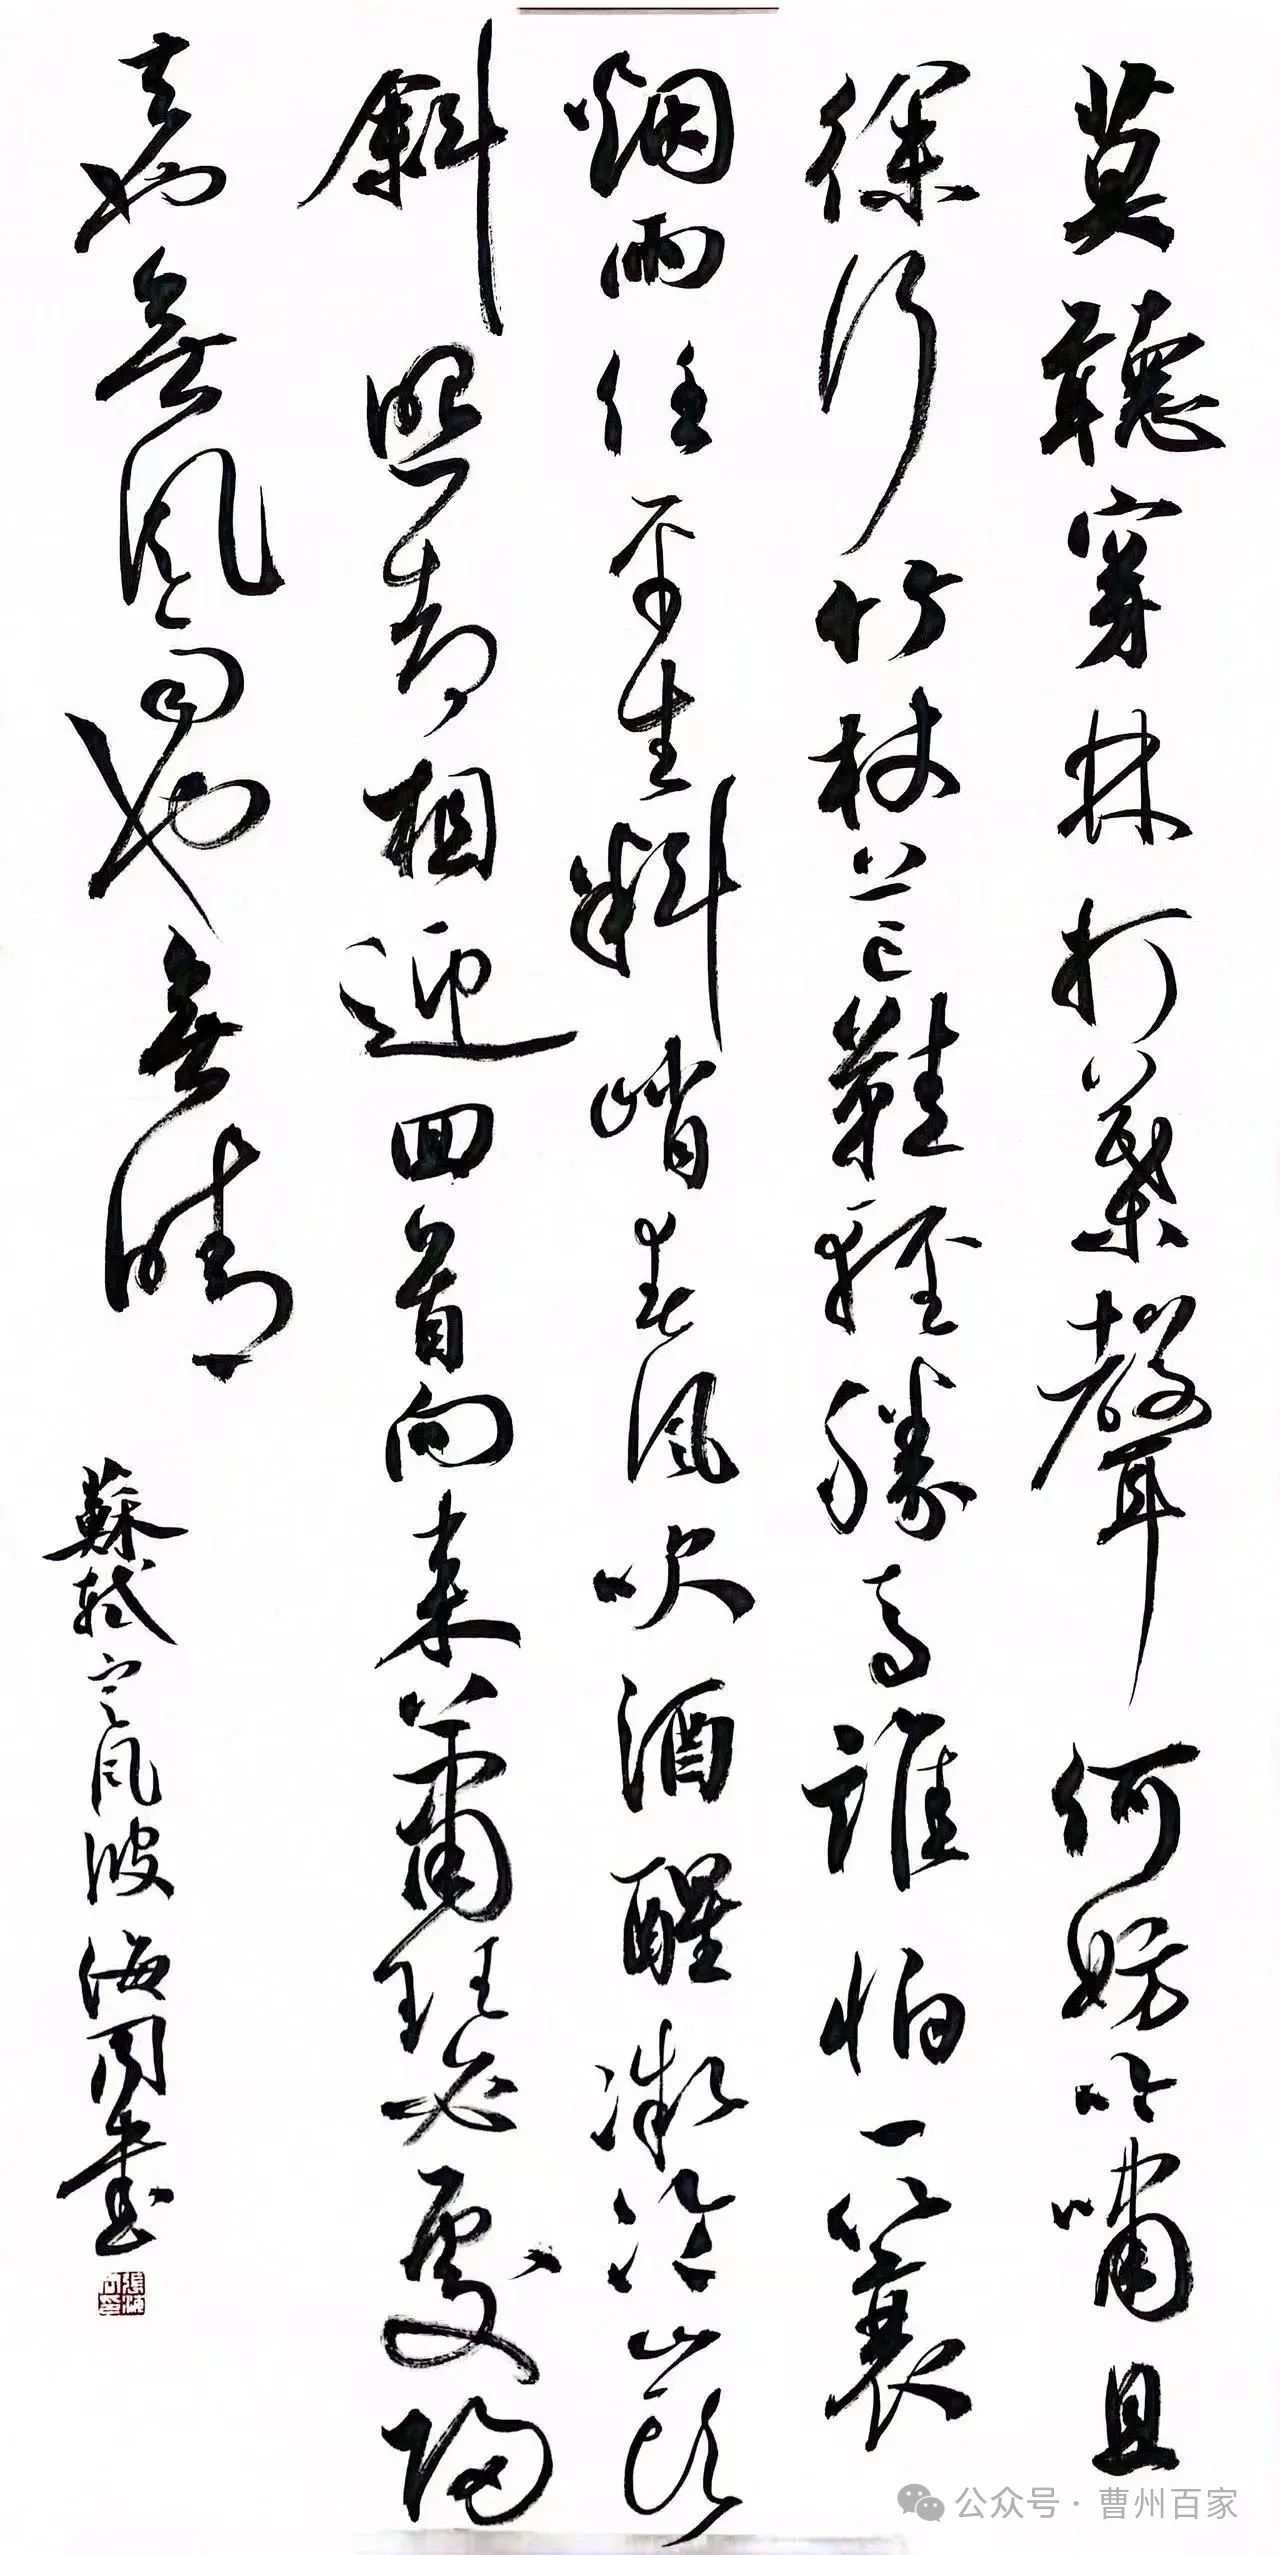 莫聽穿林打葉聲何妨吟嘯且
徐行竹杖芒鞋輕勝馬誰怕一蓑
烟雨任平生料峭春風吹酒醒微冷山頭
斜照却相迎回首向来蕭瑟處歸
去也無風雨也無晴
蘇軾定風波海周書
公众号·曹州百家